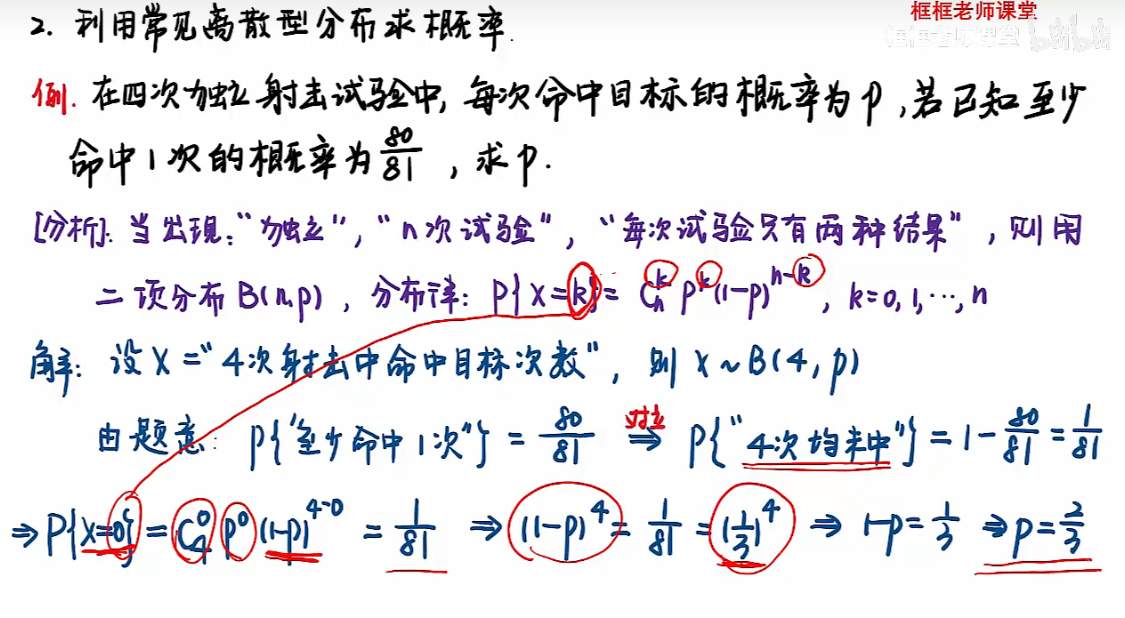 框框老师课堂
框框老师课堂 bilibili
2. 利用常见离散型分布求概率.
例. 在四次独立射击试验中, 每次命中目标的概率为p, 若已知至少
命中1次的概率为80/81, 求p.
[分析]: 当出现: "独立", "n次试验", "每次试验只有两种结果", 则用
二项分布B(n,p), 分布律: P{X=k}= C_n^k p^k (1-p)^{n-k}, k=0,1,…,n
解: 设X="4次射击中命中目标次数", 则 X~B(4,p)
对立
由题意: P{"至少命中1次"} = 80/81 ⇒ P{"4次均未中"} = 1-80/81 = 1/81
⇒ P{X=0} = C_4^0 p^0 (1-p)^{4-0} = 1/81 ⇒ (1-p)^4 = 1/81 = (1/3)^4 ⇒ 1-p = 1/3 ⇒ p = 2/3